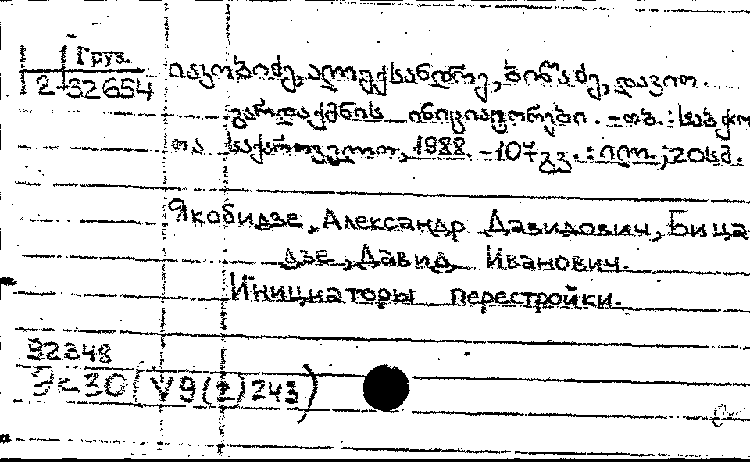 Груз.
2-32654
იაკობიძე, ალექსანდრე, ბიწაძე, დავით.
გარდაქმნის ინიციატორები. - თბ. : საბჭო
თა საქართველო, 1988. - 107 გვ. : ილ.; 20 სმ.
Якобидзе, Александр Давидович, Бица
дзе, Давид Иванович.
Инициаторы перестройки.
32348
Эк30(V9(2)243)